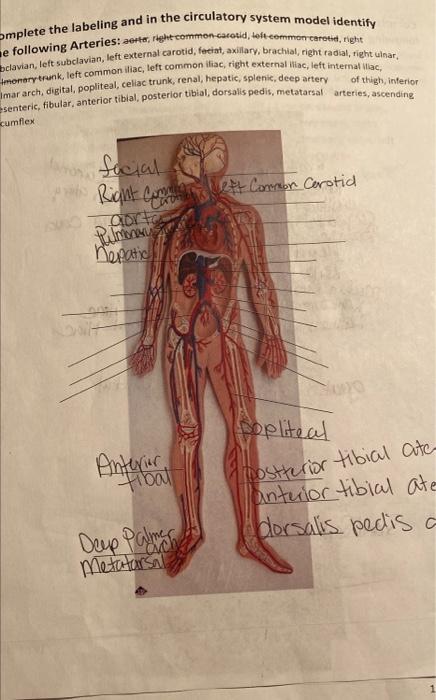 omplete the labeling and in the circulatory system model identify
e following Arteries: aorta, right common carotid, left common carotid, right
bclavian, left subclavian, left external carotid, facial, axillary, brachial, right radial, right ulnar,
lmonary trunk, left common iliac, left common iliac, right external iliac, left internal iliac,
lmar arch, digital, popliteal, celiac trunk, renal, hepatic, splenic, deep artery of thigh, inferior
esenteric, fibular, anterior tibial, posterior tibial, dorsalis pedis, metatarsal arteries, ascending
cumflex
facial
Right Common Carotid
left Common Carotid
aorta
Pulmonary
hepatic
popliteal
Anterior tibal
postterior tibial ate
anterior tibial ate
dorsalis pedis a
Deep Palmer arch
Metatarsal
1